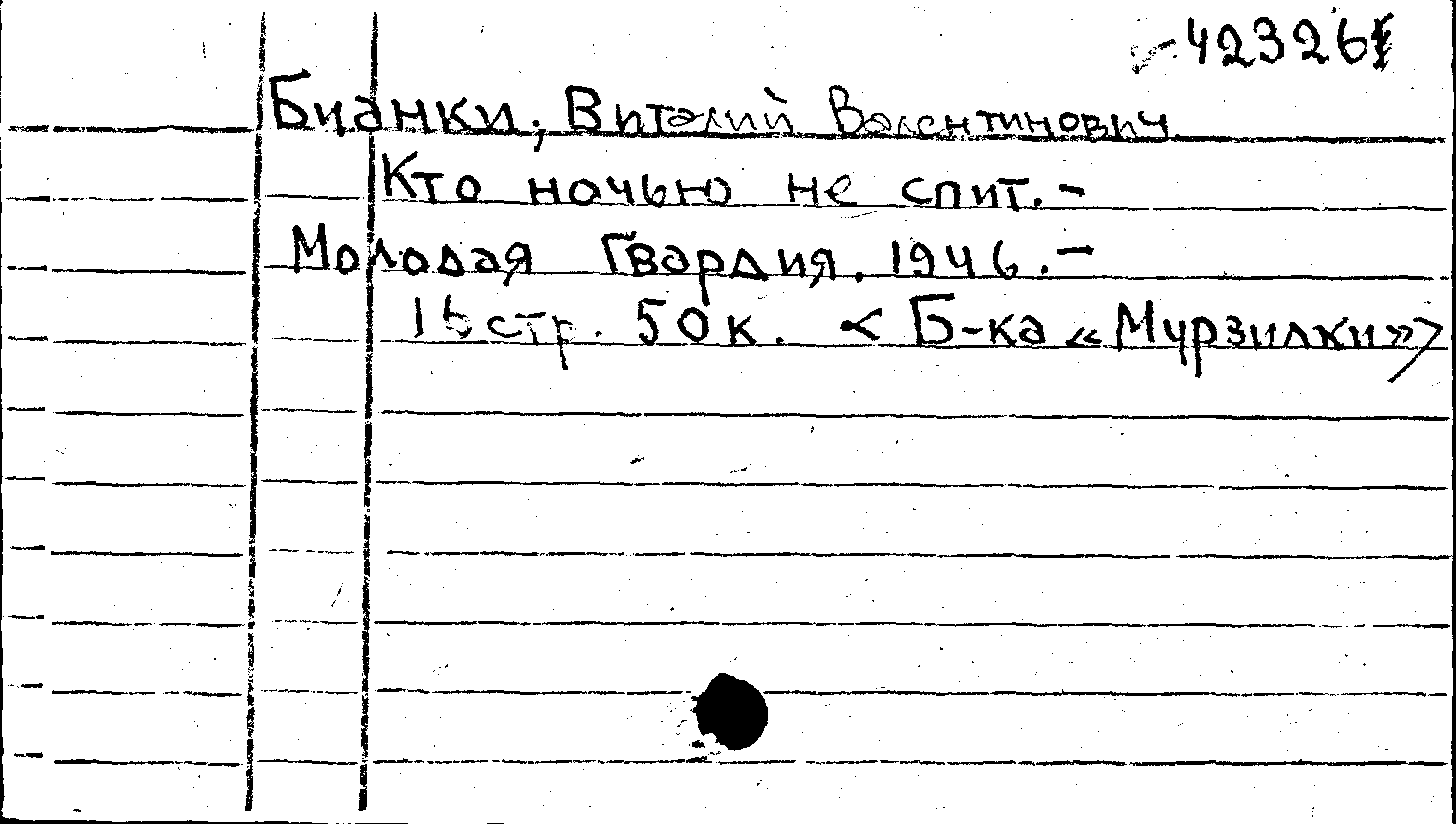 423261
Бианки, Виталий Валентинович
Кто ночью не спит. -
Молодая Гвардия. 1946. -
16 стр. 50 к. < Б-ка «Мурзилки»>